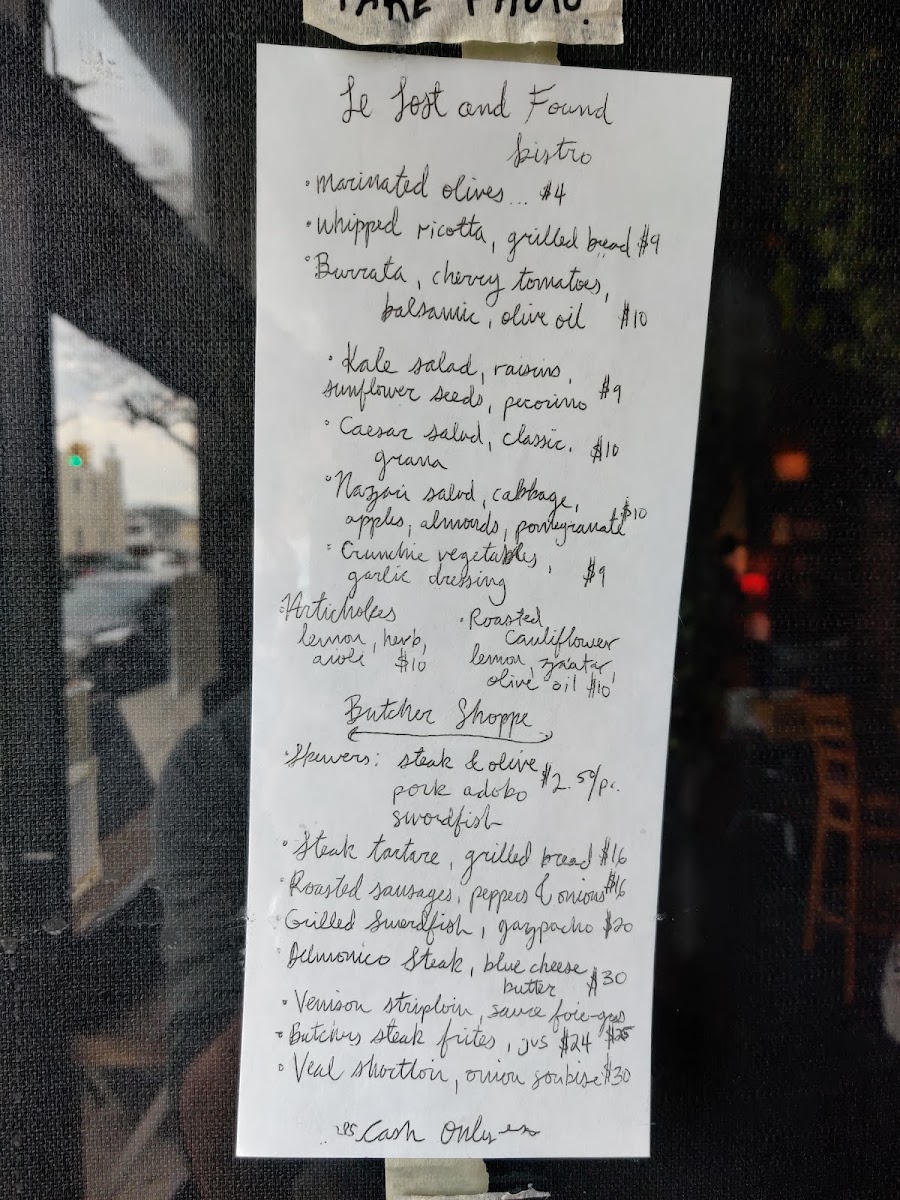 TAKE PHOTO!
Le Lost and Found
bistro
• Marinated olives... $4
• whipped ricotta, grilled bread $9
• Burrata, cherry tomatoes,
balsamic, olive oil $10
• Kale salad, raisins,
sunflower seeds, pecorino $9
• Caesar salad, classic,
grana $10
salad, cabbage,
apples, almonds, pomegranate $10
• Crunchie vegetables,
garlic dressing $9
• Artichokes
lemon, herb,
aioli $10
• Roasted
Cauliflower
lemon, zaatar,
olive oil $10
Butcher Shoppe
• Skewers: steak & olive
pork adobo $2.50/pc.
swordfish
• Steak tartare, grilled bread $16
• Roasted sausages, peppers & onions $16
• Grilled Swordfish, gazpacho $20
• Delmonico Steak, blue cheese
butter $30
• Venison striploin, sauce foie-gras
$25
• Butchers steak frites, jus $24
• Veal shortloin, onion soubise $30
Cash Only